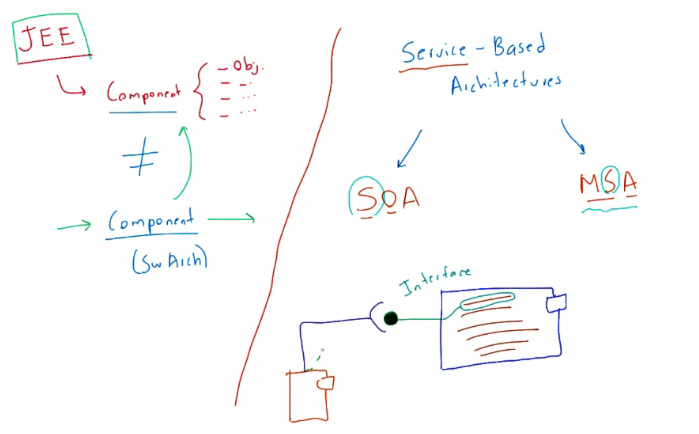 JEE
Component
- Obj.
- ...
- ...
- ...
≠
Component
(Sw Arch)
Service-Based
Architectures
SOA
MSA
Interface